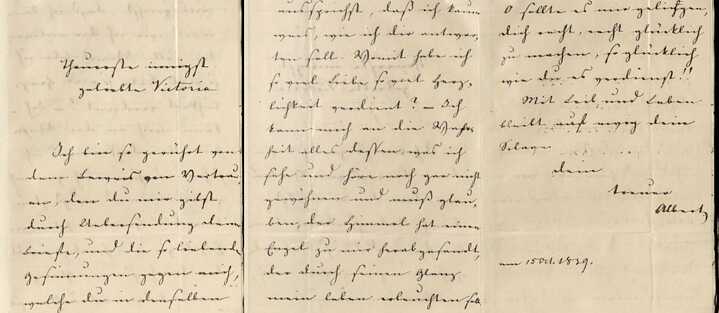 Theuerste innigst
geliebte Victoria
Ich bin so gerührt von
dem Beweis von Vertrau,
en, den du mir gibst
durch Uebersendung deiner
Briefe, und die so liebende
Gesinnungen gegen mich,
welche du in denselben
aussprichst, daß ich kaum
weis, wie ich dir antwor,
ten soll. Womit habe ich
so viel Liebe so viel Herz,
lichkeit verdient? – Ich
kann mich an die Wahr
heit alles dessen, was ich
sehe und höre noch gar nicht
gewöhnen und muß glau,
ben, der Himmel hat einen
Engel zu mir herabgesendet,
der durch seinen Glanz
mein Leben erleuchten soll
O sollte es mir gelingen,
dich recht, recht glücklich
zu machen, so glücklich
wie du es verdienst!!
Mit Leib und Leben
bleibt auf ewig dein
Sclave
dein
treuer
Albert
am 15 Oct. 1839.